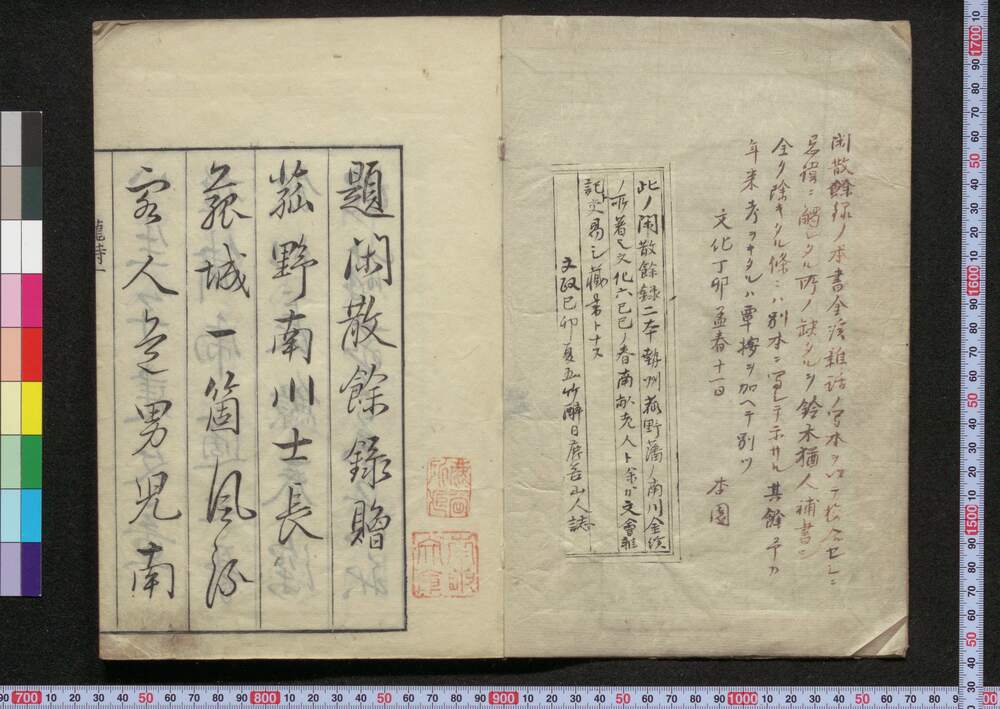 閑散餘録ノ本書金渓雜話ノ写本ヲ以テ校合セシニ
忌諱ニ觸レタル所ノ缺タルヲ鈴木猶人補書シ
全ク除キタル條ニハ別本ニ寫シテ示サル其餘予カ
年来考ヲキタルハ覃按ヲ加ヘテ別ツ
文化丁卯孟春十一日 杏園
此ノ閑散餘録二本勢州菰野藩ノ南川金渓
ノ所著也文化六己巳ノ春南畝老人ト余カ文會雜
記交易シ藏書トナス
文政己卯夏五竹醉日
題閑散餘録贈
菰野南川士長
菰城一箇風流
客人是男児南